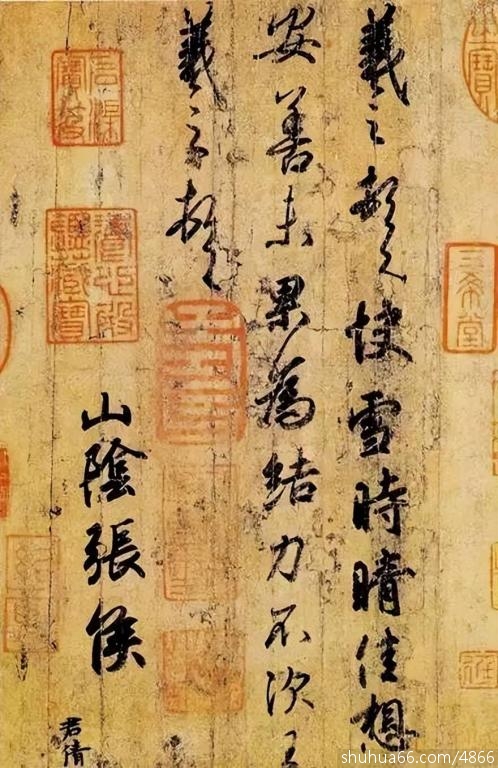 三希堂
羲之頓首快雪時晴佳想
安善未果為結力不次王
羲之頓首
山陰張侯
石渠寶笈
養心殿鑑藏寶
君倩
shuhua66.com/4866